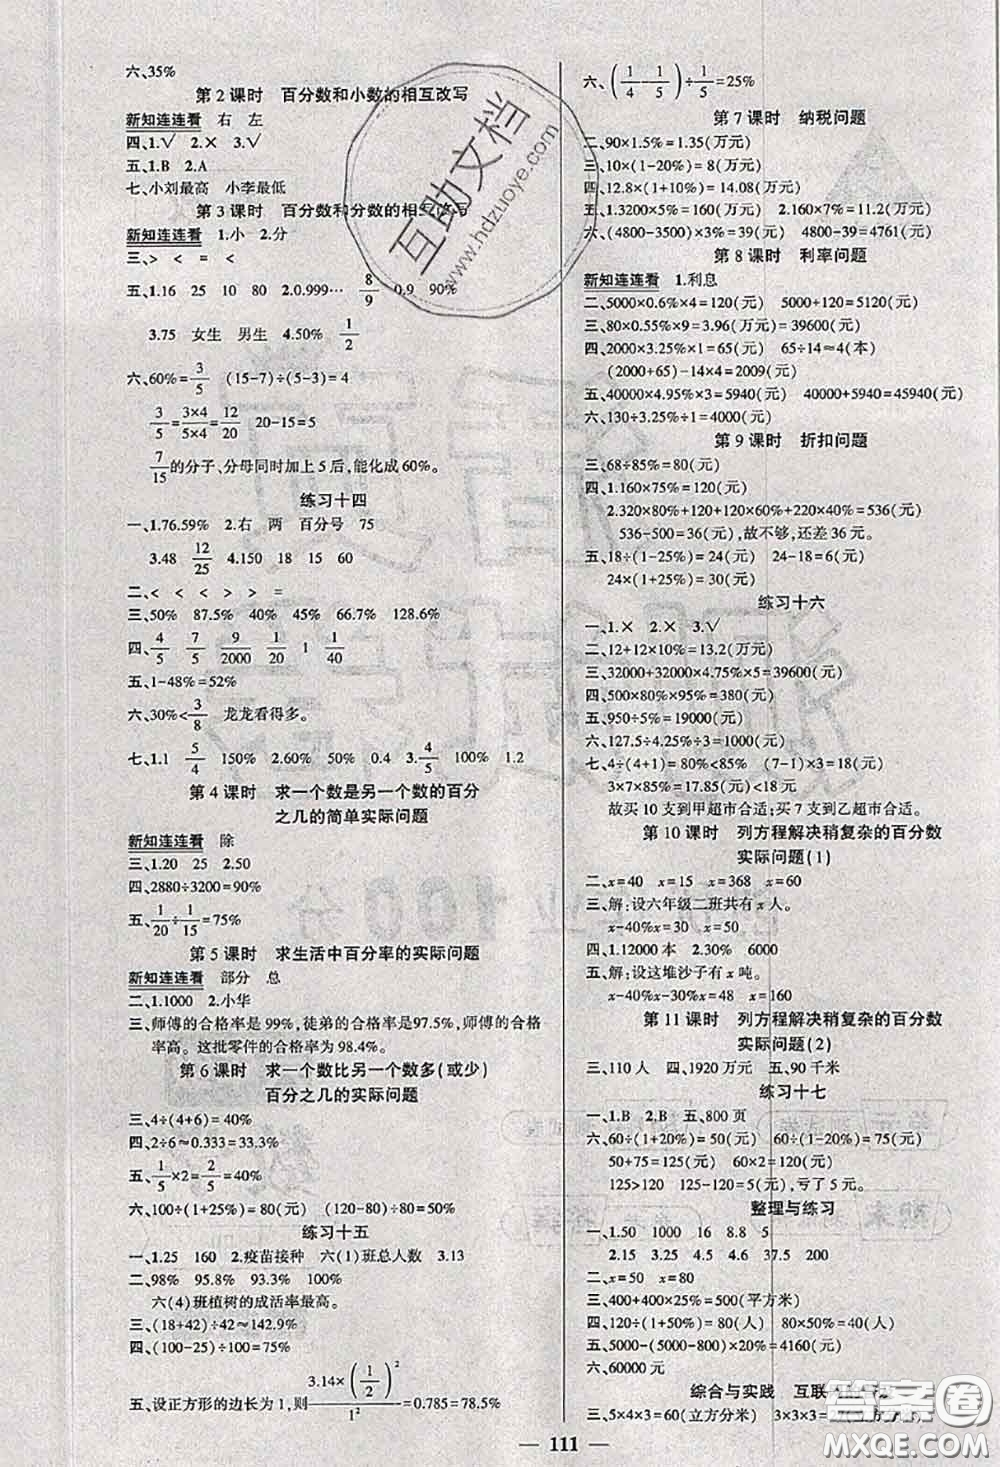 六、35%
第2课时 百分数和小数的相互改写
新知连连看 右 左
四、1.√ 2.× 3.√
五、1.B 2.A
七、小刘最高 小李最低
第3课时 百分数和分数的相互改写
新知连连看 1.小 2.分
三、> < = <
五、1.16 25 10 80 2.0.999… 8/9 0.9 90%
3.75 女生 男生 4.50% 1/2
六、60%=3/5 (15-7)÷(5-3)=4
3/5=3×4/5×4=12/20 20-15=5
7/15的分子、分母同时加上5后,能化成60%。
练习十四
一、1.76.59% 2.右 两 百分号 75
3.48 12/25 4.150 18 15 60
二、< < < > > =
三、50% 87.5% 40% 45% 66.7% 128.6%
四、4/5 7/5 9/2000 1/20 1 1/40
五、1-48%=52%
六、30%<3/8 龙龙看得多。
七、1.1 5/4 150% 2.60% 50% 0.4 3.4/5 100% 1.2
第4课时 求一个数是另一个数的百分
之几的简单实际问题
新知连连看 除
三、1.20 25 2.50
四、2880÷3200=90%
五、1/20÷1/15=75%
第5课时 求生活中百分率的实际问题
新知连连看 部分 总
二、1.1000 2.小华
三、师傅的合格率是99%,徒弟的合格率是97.5%,师傅的合格
率高。这批零件的合格率为98.4%。
第6课时 求一个数比另一个数多(或少)
百分之几的实际问题
三、4÷(4+6)=40%
四、2÷6≈0.333=33.3%
五、1/5×2=2/5=40%
六、100÷(1+25%)=80(元) (120-80)÷80=50%
练习十五
一、1.25 160 2.疫苗接种 六(1)班总人数 3.13
二、98% 95.8% 93.3% 100%
六(4)班植树的成活率最高。
三、(18+42)÷42≈142.9%
四、(100-25)÷100=75%
五、设正方形的边长为1,则3.14×(1/2)²/1²=0.785=78.5%
六、(1/4-1/5)÷1/5=25%
第7课时 纳税问题
二、90×1.5%=1.35(万元)
三、10×(1-20%)=8(万元)
四、12.8×(1+10%)=14.08(万元)
五、1.3200×5%=160(万元) 2.160×7%=11.2(万元)
六、(4800-3500)×3%=39(元) 4800-39=4761(元)
第8课时 利率问题
新知连连看 1.利息
二、5000×0.6%×4=120(元) 5000+120=5120(元)
三、80×0.55%×9=3.96(万元)=39600(元)
四、2000×3.25%×1=65(元) 65÷14≈4(本)
(2000+65)-14×4=2009(元)
五、40000×4.95%×3=5940(元) 40000+5940=45940(元)
六、130÷3.25%÷1=4000(元)
第9课时 折扣问题
三、68÷85%=80(元)
四、1.160×75%=120(元)
2.320×80%+120+120×60%+220×40%=536(元)
536-500=36(元),故不够,还差36元。
五、18÷(1-25%)=24(元) 24-18=6(元)
24×(1+25%)=30(元)
练习十六
一、1.× 2.× 3.√
二、12+12×10%=13.2(万元)
三、32000+32000×4.75%×5=39600(元)
四、500×80%×95%=380(元)
五、950÷5%=19000(元)
六、127.5÷4.25%÷3=1000(元)
七、4÷(4+1)=80%<85% (7-1)×3=18(元)
3×7×85%=17.85(元) 18>17.85
故买10支到甲超市合适;买7支到乙超市合适。
第10课时 列方程解决稍复杂的百分数
实际问题(1)
二、x=40 x=15 x=368 x=60
三、解:设六年级二班共有x人。
x-40%x=30 x=50
四、1.12000本 2.30% 6000
五、解:设这堆沙子有x吨。
x-40%x-30%x=48 x=160
第11课时 列方程解决稍复杂的百分数
实际问题(2)
三、110人 四、1920万元 五、90千米
练习十七
一、1.B 2.B 五、800页
六、60÷(1+20%)=50(元) 60÷(1-20%)=75(元)
50+75=125(元) 60×2=120(元)
125>120 125-120=5(元),亏了5元。
整理与练习
一、1.50 1000 16 8.8 5
2.15 3.25 4.6 7.36 37.5 200
二、x=50 x=80
三、400+400×25%=500(平方米)
四、120÷(1+50%)=80(人) 80×50%=40(人)
五、5000-(5000-800)×20%=4160(元)
六、60000元
综合与实践 互联
三、5×4×3=60(立方分米) 3×3×3=27(立方分米)
111
互助文档
www.hdzuoye.com
答案圈
MXQE.COM